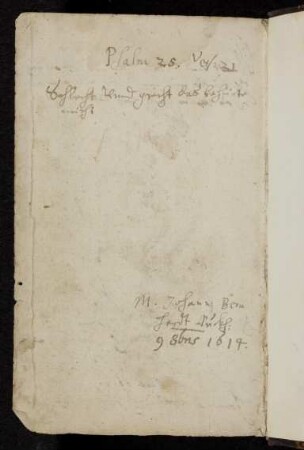 Psalm 25. Vers. 21
Schlecht Vnd recht das behüte
mich
M. Johann Bern
hardt
9 8bris 1614.